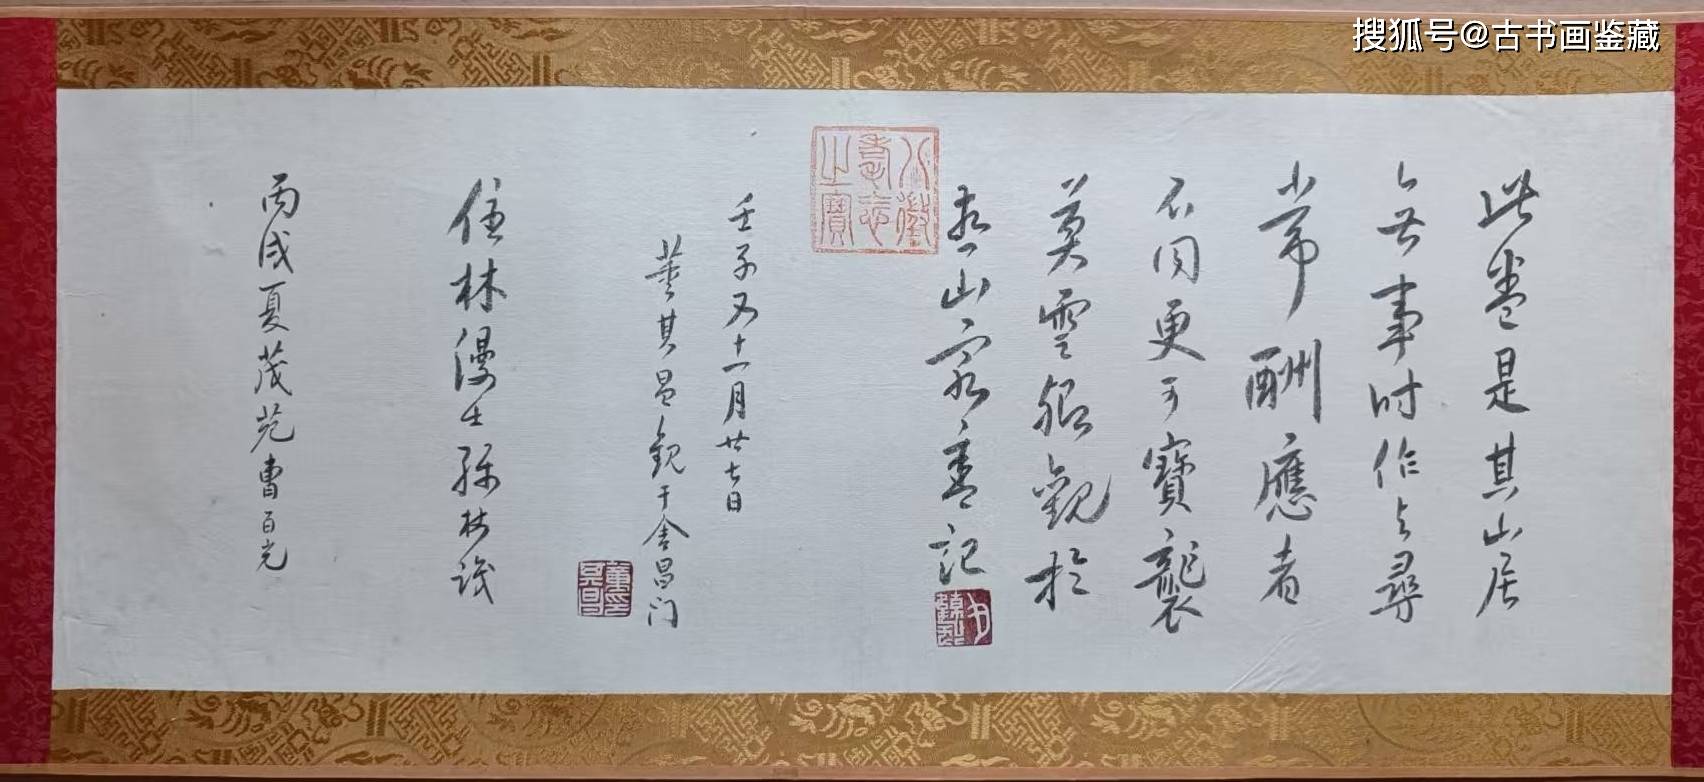 搜狐号@古书画鉴藏
此卷是其山居
无事时作与寻
常酬應者
不同更可寶襲
莫雲卿觀於
山家書記
八徵耄念之寶
壬子又十一月廿七日
董其昌觀于舍昌门
住林漫士孫枝識
丙戌夏茂苑曹百光